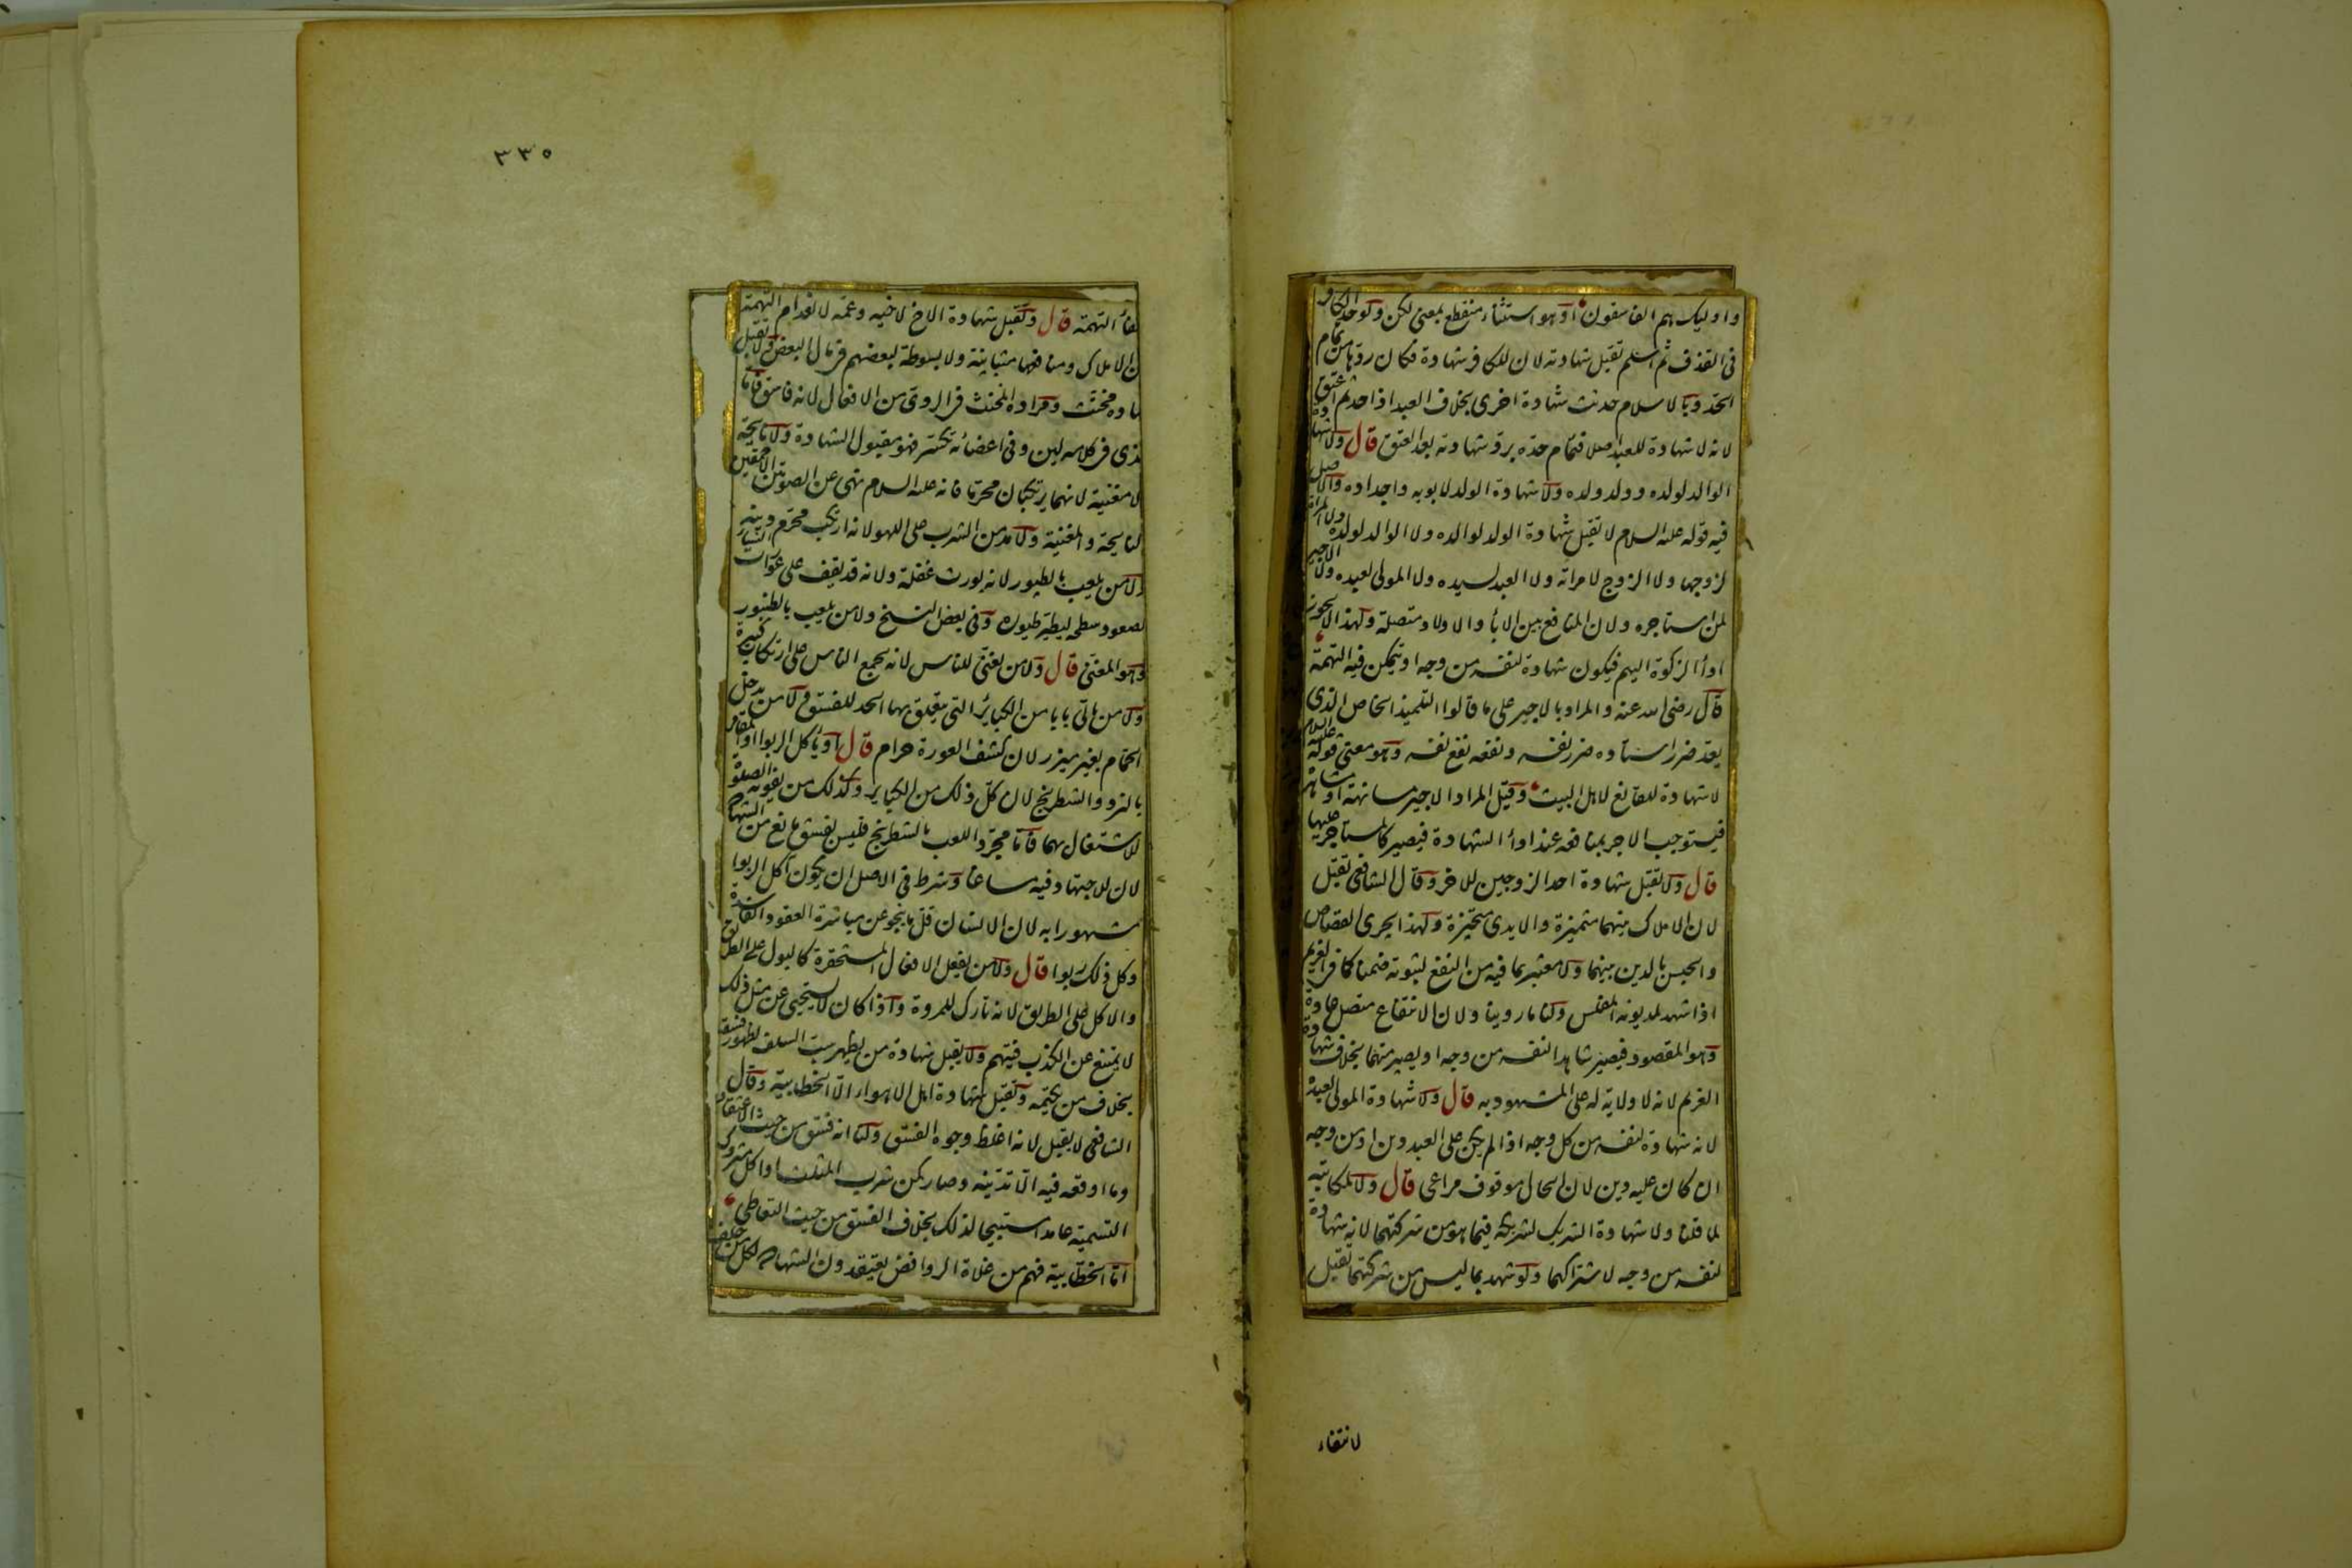 واوليك هم الفاسقون او هو استثناء منقطع بمعنى لكن ولو حد الكافر
فى القذف ثم اسلم تقبل شهادته لان للكافر شهادة فكان ردها من تمام
الحد وبالاسلام حدثت شهادة اخرى بخلاف العبد اذا حد ثم اعتق
لانه لا شهادة للعبد اصلا فتمام حده برد شهادته بعد العتق قال ولا شهادة
الوالد لولده وولد ولده ولا شهادة الولد لابويه واجداده والاصل
فيه قوله عليه السلام لا تقبل شهادة الولد لوالده ولا الوالد لولده ولا المراة
لزوجها ولا الزوج لامراته ولا العبد لسيده ولا المولى لعبده ولا الاجير
لمن استاجره ولان المنافع بين الابأ والاولاد متصلة ولهذا لا يجوز
ادأ الزكوة اليهم فيكون شهادة لنفسه من وجه او يتمكن فيه التهمة
قال رضى الله عنه والمراد بالاجير على ما قالوا التلميذ الخاص الذى
يعد ضرر استاده ضرر نفسه ونفعه نفع نفسه وهو معنى قوله عليه السلام
لا شهادة للقانع لاهل البيت وقيل المراد الاجير مسانهة او مشاهرة
فيستوجب الاجر بمنافعه عند ادأ الشهادة فيصير كالمستاجر عليها
قال ولا تقبل شهادة احد الزوجين للاخر وقال الشافعى تقبل
لان الاملاك بينهما متميزة والايدى متحيزة ولهذا يجرى القصاص
والحبس بالدين بينهما ولا معتبر بما فيه من النفع لثبوته ضمنا كما فى الغريم
اذا شهد لمديونه المفلس ولنا ما روينا ولان الانتفاع متصل عادة
وهو المقصود فيصير شاهدا لنفسه من وجه او يصير متهما بخلاف شهادة
الغريم لانه لا ولاية له على المشهود به قال ولا شهادة المولى لعبده
لانه شهادة لنفسه من كل وجه اذا لم يكن على العبد دين او من وجه
ان كان عليه دين لان الحال موقوف مراعى قال ولا لمكاتبه
لما قلنا ولا شهادة الشريك لشريكه فيما هو من شركتهما لانه شهادة
لنفسه من وجه لاشتراكهما ولو شهد بما ليس من شركتهما تقبل
لانتفاء
٣٣٥
لانتفأ التهمة قال وتقبل شهادة الاخ لاخيه وعمه لانعدام التهمة
لان الاملاك ومنافعها متباينة ولا بسوطة لبعضهم فى مال البعض ولا تقبل
شهادة مخنث ومراده المخنث فى الردى من الافعال لانه فاسق فاما
الذى فى كلامه لين وفى اعضائه تكسر فهو مقبول الشهادة ولا نايحة
ولا مغنية لانهما يرتكبان محرما فانه عليه السلام نهى عن الصوتين الاحمقين
النايحة والمغنية ولا مدمن الشرب على اللهو لانه ارتكب محرم دينه
ولا من يلعب بالطيور لانه يورث غفلة ولانه قد يقف على عورات النسأ
لصعود سطحه ليطير طيوره وفى بعض النسخ ولا من يلعب بالطنبور
وهو المغنى قال ولا من يغنى للناس لانه يجمع الناس على ارتكاب كبيرة
ولا من ياتى بابا من الكبائر التى يتعلق بها الحد للفسق ولا من يدخل
الحمام بغير ميزر لان كشف العورة حرام قال او ياكل الربوا او المقامر
بالنرد والشطرنج لان كل ذلك من الكباير وكذلك من يفوته الصلوة
للاشتغال بهما فاما مجرد اللعب بالشطرنج فليس بفسق مانع من الشهادة
لان للاجتهاد فيه مساغا وشرط فى الاصل ان يكون آكل الربوا
مشهورا به لان الانسان قل ما ينجو عن مباشرة العقود الفاسدة
وكل ذلك ربوا قال ولا من يفعل الافعال المستحقرة كالبول على الطريق
والاكل على الطريق لانه تارك للمروة واذا كان لا يستحيى عن مثل ذلك
لا يمتنع عن الكذب فيتهم ولا يقبل شهادة من يظهر سب السلف لظهور فسقه
بخلاف من يكتمه وتقبل شهادة اهل الاهواء الا الخطابية وقال
الشافعى لا يقبل لانه اغلظ وجوه الفسق ولنا انه فسق من حيث الاعتقاد
وما اوقعه فيه الا تدينه وصار كمن شرب المثلث او اكل متروك
التسمية عامدا مستبيحا لذلك بخلاف الفسق من حيث التعاطى
اما الخطابية فهم من غلاة الروافض يعتقدون الشهادة لكل من حلف